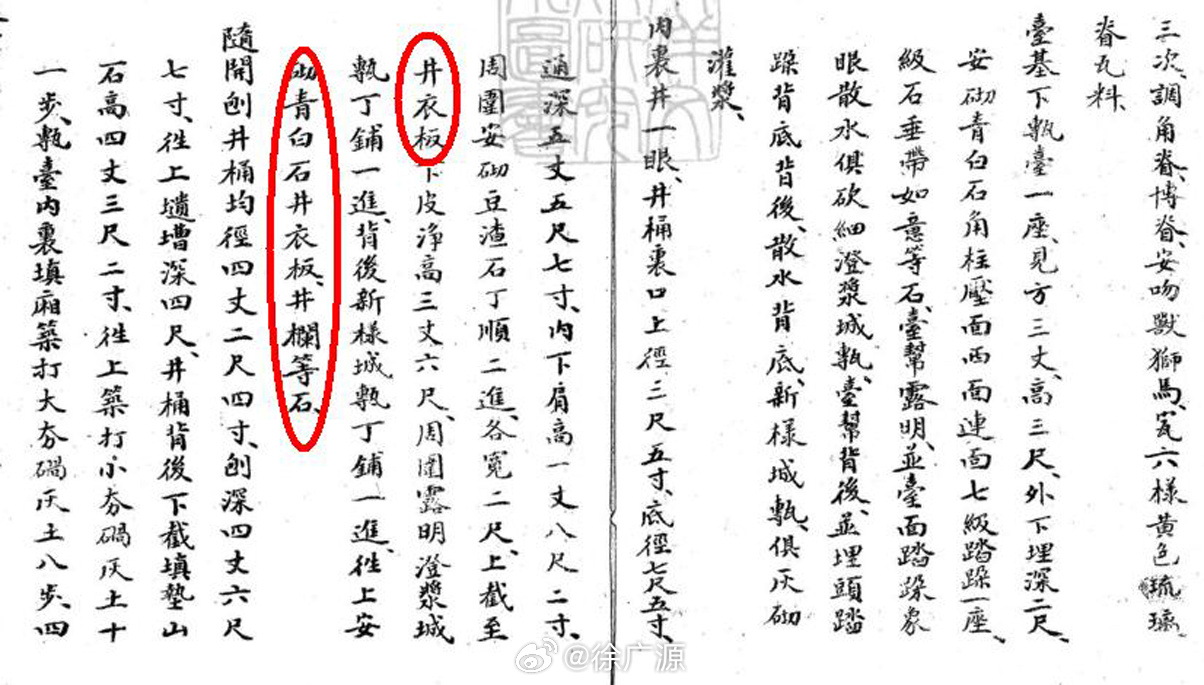 三次、調角脊、博脊、安吻獸獅馬、瓦六樣黃色琉璃
脊瓦料、
臺基下甎臺一座、見方三丈、高三尺、外下埋深二尺、
安砌青白石角柱壓面西面連面七級踏跺一座、
級石垂帶如意等石、臺幫露明、並臺面踏跺象
眼散水俱砍細澄漿城甎、臺幫背後、並埋頭踏
跺背底背後、散水背底、新樣城甎、俱灰砌
灌漿、
內裏井一眼、井桶裏口上徑三尺五寸、底徑七尺五寸、
通深五丈五尺七寸、內下肩高一丈八尺二寸、
周圍安砌豆渣石丁順二進、各寬二尺、上截至
井衣板下皮淨高三丈六尺、周圍露明澄漿城
甎丁鋪一進、背後新樣城甎丁鋪一進、徃上安
砌青白石井衣板、井欄等石、
隨開刨井桶均徑四丈二尺四寸、刨深四丈六尺
七寸、徃上壝墻深四尺、井桶背後下截填墊山
石高四丈三尺二寸、徃上築打小夯碢灰土十
一步、甎臺內裏填廂築打大夯碢灰土八步、四
@徐广源